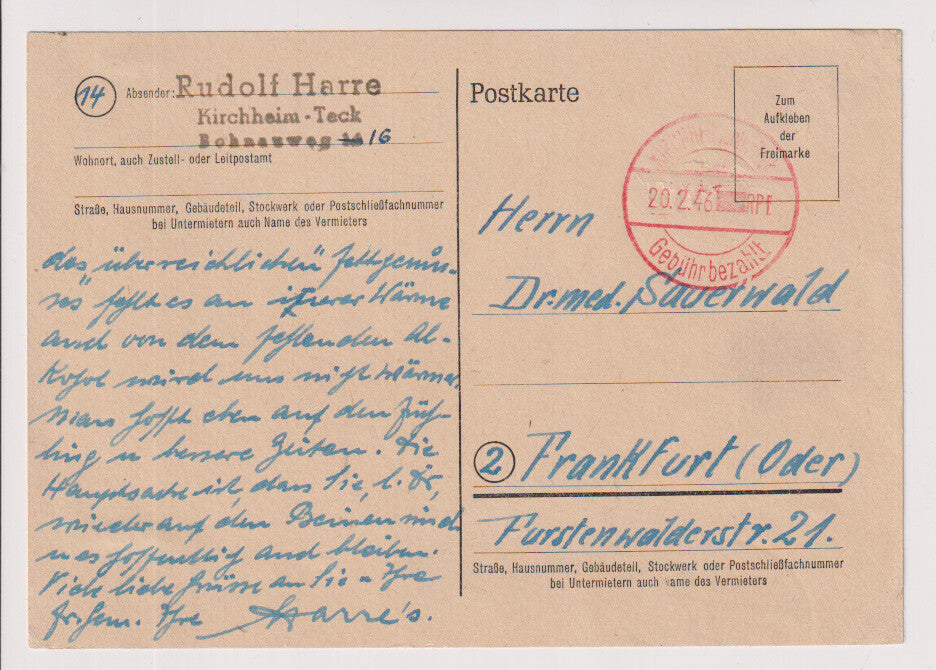 14 Absender: Rudolf Harre
Kirchheim-Teck
Bohnauweg 16
Wohnort, auch Zustell- oder Leitpostamt
Straße, Hausnummer, Gebäudeteil, Stockwerk oder Postschließfachnummer
bei Untermietern auch Name des Vermieters
das überreichlichen Fettgenus-
ses fehlt es an innerer Wärme
auch von dem fehlenden Al-
kohol wird uns nicht wärmer.
Man hofft eben auf den Früh-
ling u bessere Zeiten. Die
Hauptsache ist, dass Sie, l. Dr,
wieder auf den Beinen sind
u es hoffentlich auch bleiben.
Viele liebe Grüsse an Sie
Ihre Harre's.
Postkarte
Zum
Aufkleben
der
Freimarke
20.2.46 RPf
Gebühr bezahlt
Herrn
Dr. med. Sauerwald
2 Frankfurt (Oder)
Furstenwalderstr. 21.
Straße, Hausnummer, Gebäudeteil, Stockwerk oder Postschließfachnummer
bei Untermietern auch Name des Vermieters